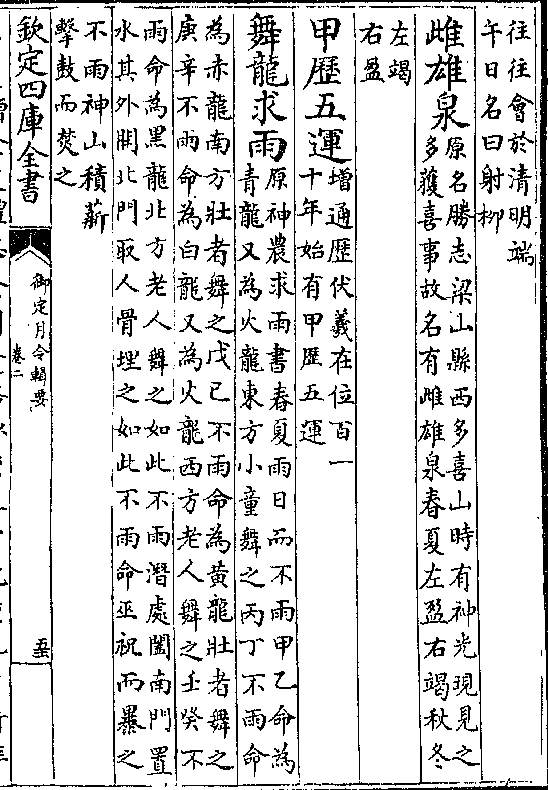 往往會於清明端
午日名曰射柳
雌雄泉
原名勝志梁山縣西多喜山時有神光現見之
多獲喜事故名有雌雄泉春夏左盈右竭秋冬
左竭
右盈
甲歷五運
增通歷伏羲在位百一
十年始有甲歷五運
舞龍求雨
原神農求雨書春夏雨日而不雨甲乙命為
青龍又為火龍東方小童舞之丙丁不雨命
為赤龍南方壯者舞之戊己不雨命為黃龍壯者舞之
庚辛不雨命為白龍又為火龍西方老人舞之壬癸不
雨命為黑龍北方老人舞之如此不雨潛處闔南門置
水其外開北門取人骨埋之如此不雨命巫祝而暴之
不雨神山積薪
擊鼓而焚之
欽定四庫全書
御定月令輯要
卷二